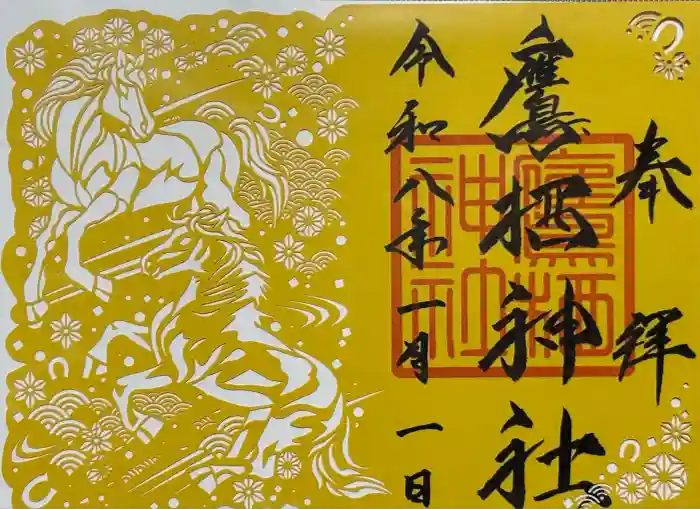 奉拝
鷹栖神社
令和八年一月一日
鷹栖
神社